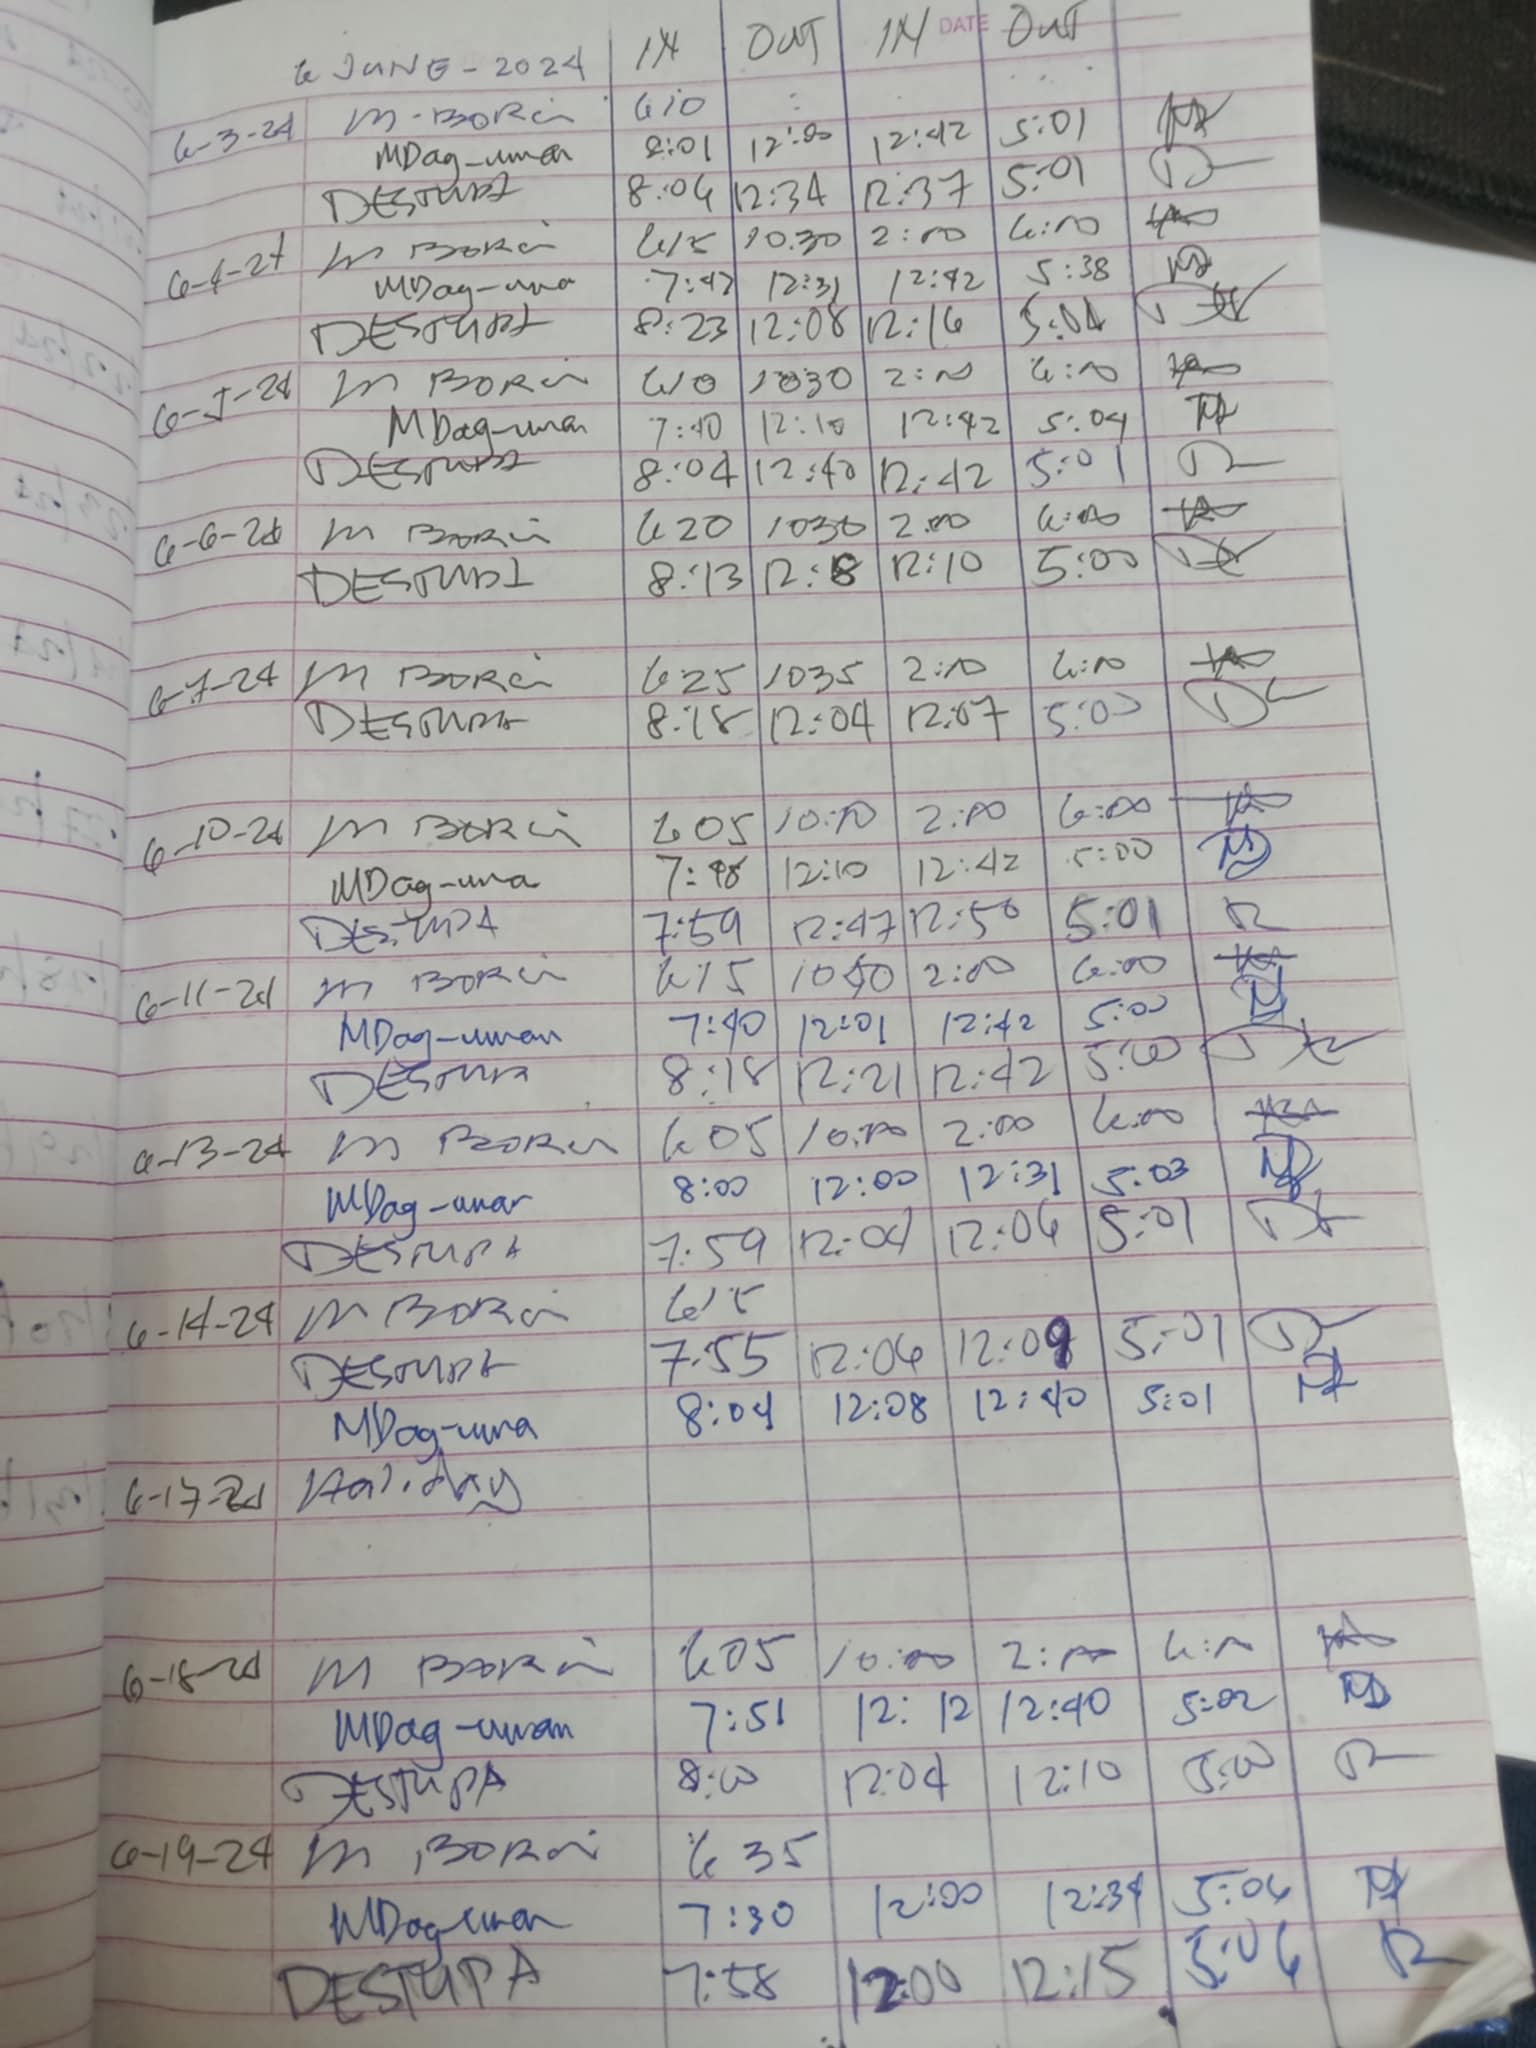 DATE
6 JUNE - 2024 IN OUT IN OUT
6-3-24 M. BORCI 610
MDag-uman 8:01 12:00 12:42 5:01
DESTUPA 8:06 12:34 12:37 5:01
6-4-24 M BORCI 615 10.30 2:00 6:00
MDag-uma 7:42 12:31 12:42 5:38
DESTUPA 8:23 12:08 12:16 5:04
6-5-24 M BORCI 610 1030 2:00 6:00
MDag-uman 7:40 12:10 12:42 5:04
DESTUPA 8:04 12:40 12:42 5:01
6-6-24 M BORCI 620 1030 2.00 6:00
DESTUPA 8:13 12:8 12:10 5:00
6-7-24 M BORCI 625 1035 2:00 6:00
DESTUPA 8:18 12:04 12:07 5:00
6-10-24 M BORCI 605 10:00 2:00 6:00
MDag-uma 7:48 12:10 12:42 5:00
DESTUPA 7:59 12:47 12:50 5:01
6-11-24 M BORCI 615 1040 2:00 6:00
MDag-uman 7:40 12:01 12:42 5:00
DESTUPA 8:18 12:21 12:42 5:00
6-13-24 M BORCI 605 10:00 2:00 6:00
MDag-uman 8:00 12:00 12:31 5:03
DESTUPA 7:59 12:04 12:06 5:01
6-14-24 M BORCI 615
DESTUPA 7:55 12:06 12:09 5:01
MDag-uma 8:04 12:08 12:40 5:01
6-17-24 Holiday
6-18-24 M BORCI 605 10:00 2:00 6:00
MDag-uman 7:51 12:12 12:40 5:02
DESTUPA 8:00 12:04 12:10 5:00
6-19-24 M BORCI 635
MDag-uman 7:30 12:00 12:34 5:06
DESTUPA 7:58 12:00 12:15 5:06